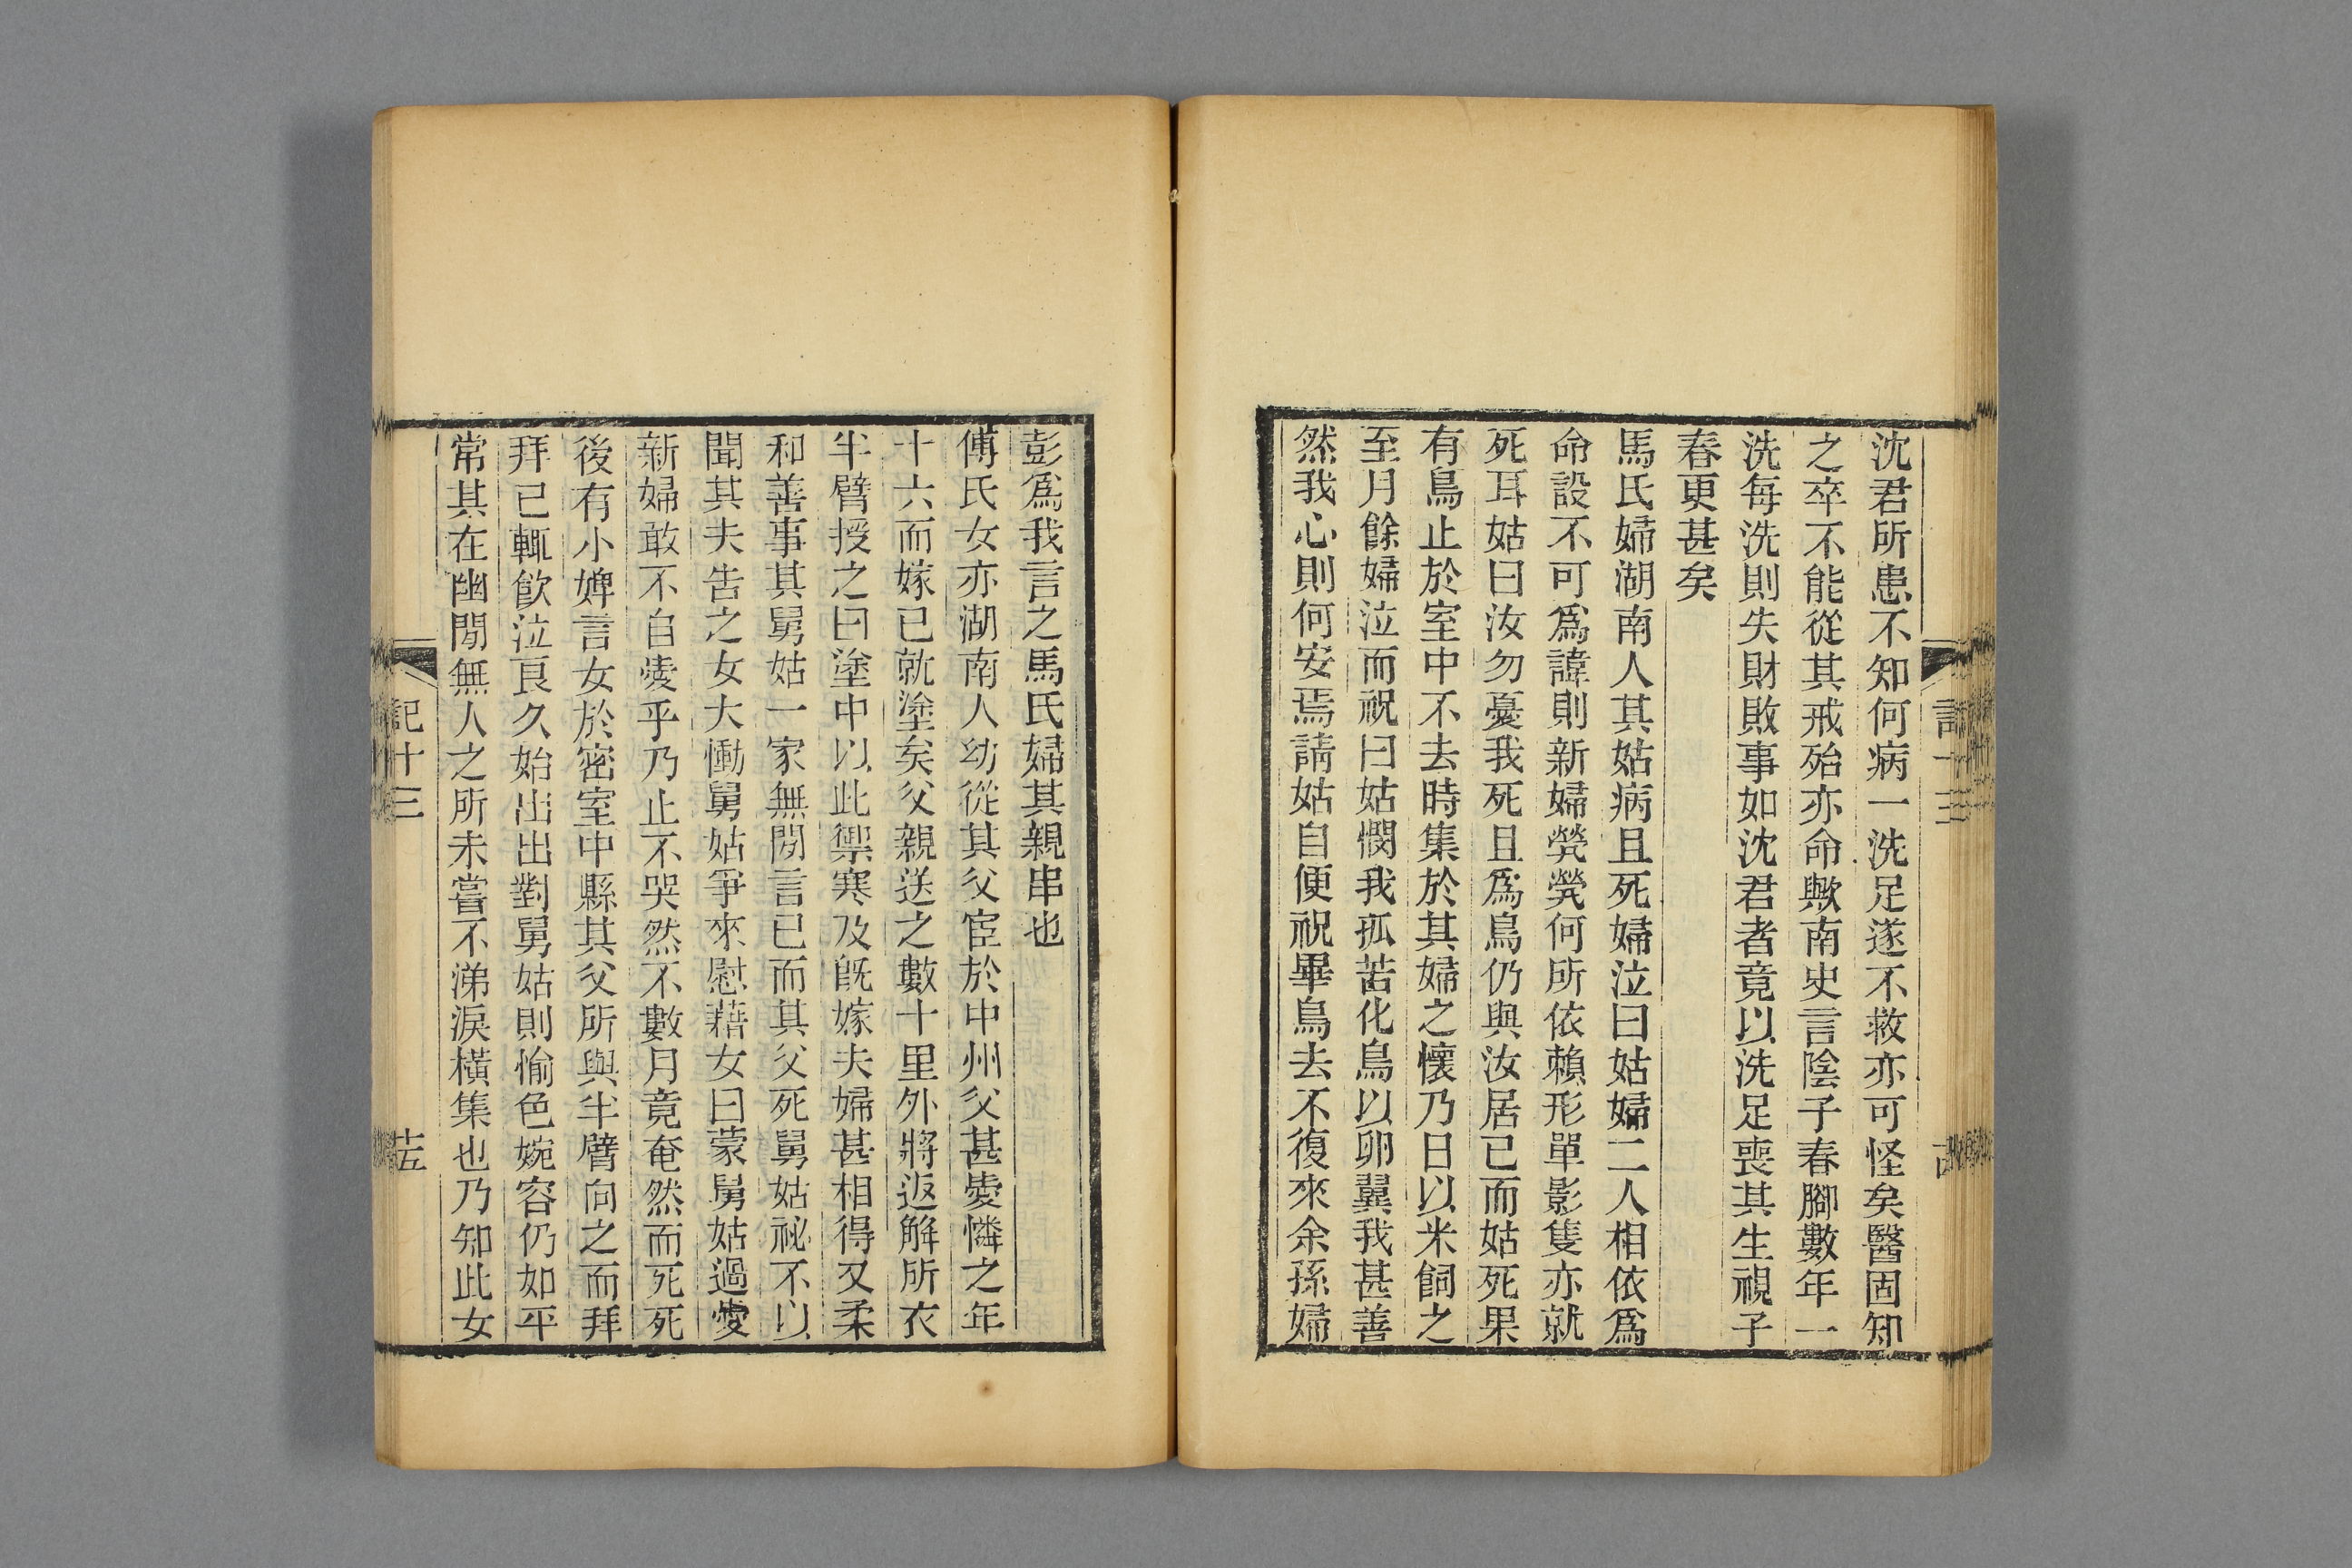 沈君所患不知何病一洗足遂不救亦可怪矣醫固知
之卒不能從其戒殆亦命歟南史言陰子春腳數年一
洗每洗則失財敗事如沈君者竟以洗足喪其生視子
春更甚矣
馬氏婦湖南人其姑病且死婦泣曰姑婦二人相依爲
命設不可爲諱則新婦煢煢何所依賴形單影隻亦就
死耳姑曰汝勿憂我死且爲鳥仍與汝居已而姑死果
有鳥止於室中不去時集於其婦之懷乃日以米飼之
至月餘婦泣而祝曰姑憫我孤苦化鳥以卵翼我甚善
然我心則何安焉請姑自便祝畢鳥去不復來余孫婦
彭爲我言之馬氏婦其親串也
傅氏女亦湖南人幼從其父宦於中州父甚愛憐之年
十六而嫁已就塗矣父親送之數十里外將返解所衣
半臂授之曰塗中以此禦寒及旣嫁夫婦甚相得又柔
和善事其舅姑一家無閒言已而其父死舅姑祕不以
聞其夫告之女大慟舅姑爭來慰藉女曰蒙舅姑過愛
新婦敢不自愛乎乃止不哭然不數月竟奄然而死死
後有小婢言女於密室中縣其父所與半臂向之而拜
拜已輒飮泣良久始出出對舅姑則愉色婉容仍如平
常其在幽閒無人之所未嘗不涕淚橫集也乃知此女
記十三
十五